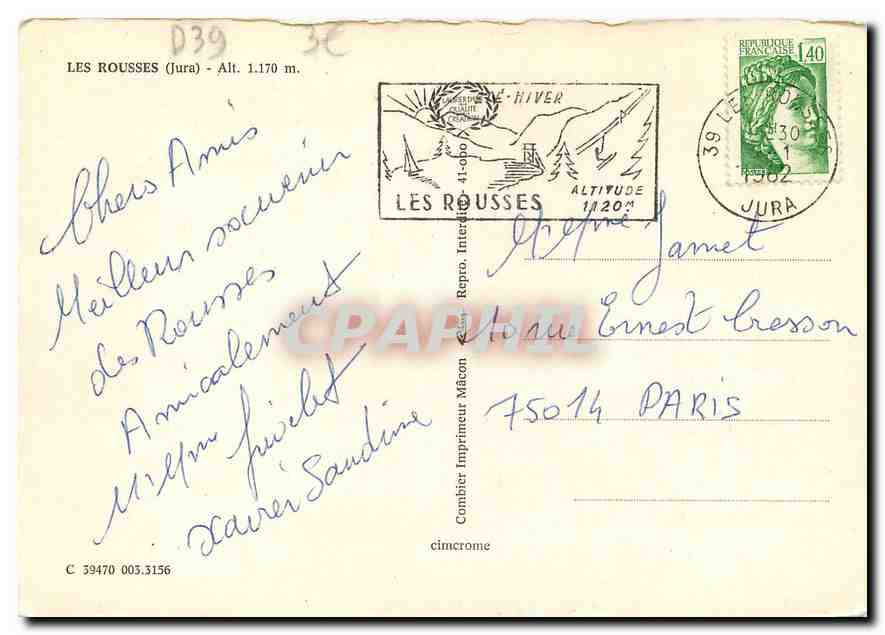 D39 3€
LES ROUSSES (Jura) - Alt. 1.170 m.
Chers Amis
Meilleur souvenir
des Rousses
Amicalement
Xavier Sandrine
C 39470 003.3156
Combier Imprimeur Mâcon Repro. Interdite - 41-000
cimcrome
É-HIVER
LES ROUSSES
ALTITUDE
1120 M
REPUBLIQUE
FRANÇAISE
1,40
39 LE
30
1
1982
JURA
Mr Mme Jamet
10 rue Ernest Cresson
75014 PARIS
CPAPHIL